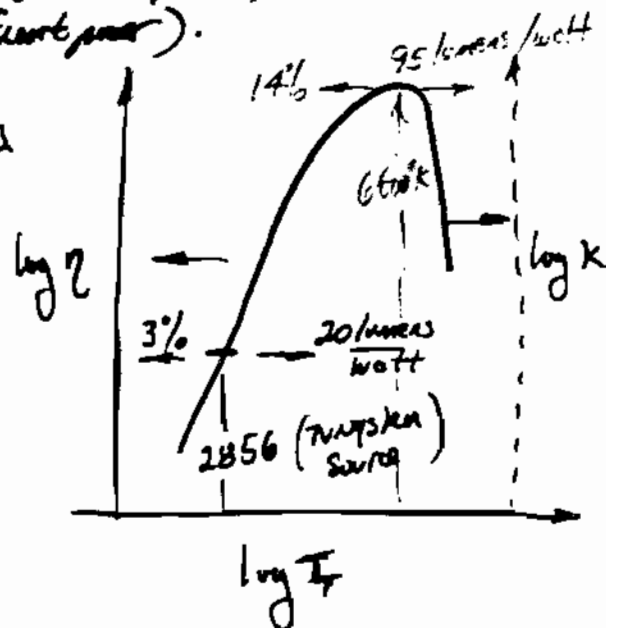 power).
95 lumens/watt
14%
6600°K
log η
log K
3%
20 lumens
watt
2856 (Tungsten
Source)
log T